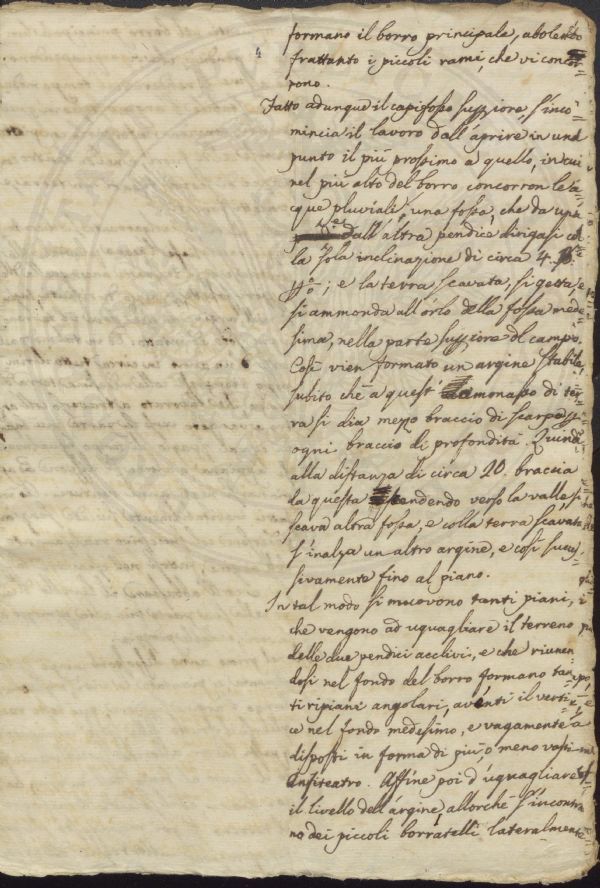 4
formano il borro principale, abolendo
frattanto i piccoli rami, che vi concor=
rono.
Fatto adunque il capifosso supriore, s'inco=
mincia il lavoro dall'aprire in una
punto il più prossimo a quello, in cui
nel più alto del borro concorron le a=
cque pluviali, una fossa, che da una
dall'altra pendice dirigasi col
la sola inclinazione di circa 4.
e la terra scavata, si getta, e
si ammonda all'orlo della fossa mede=
sima, nella parte supriore del campo.
Così vien formato un argine stabile,
subito che a quest' ammonasso di ter=
ra si dia mezzo braccio di scarpa
ogni braccio di profondità. Quindi
alla distanza di circa 20. braccia
da questa scendendo verso la valle, si
scava altra fossa, e colla terra scavata
s'inalza un altro argine, e così succes=
sivamente fino al piano.
In tal modo si muovono tanti piani,
che vengono ad uguagliare il terreno
delle due pendici acclivi, e che riunen=
dosi nel fondo del borro formano tan=
ti ripiani angolari, aventi il verti=
ce nel fondo medesimo, e vagamente
disposti in forma di più, o meno vasti
Anfiteatro. Affine poi d'uguagliare
il livello dell'argine, allorchè s'incontra=
no dei piccoli borratelli lateralmente